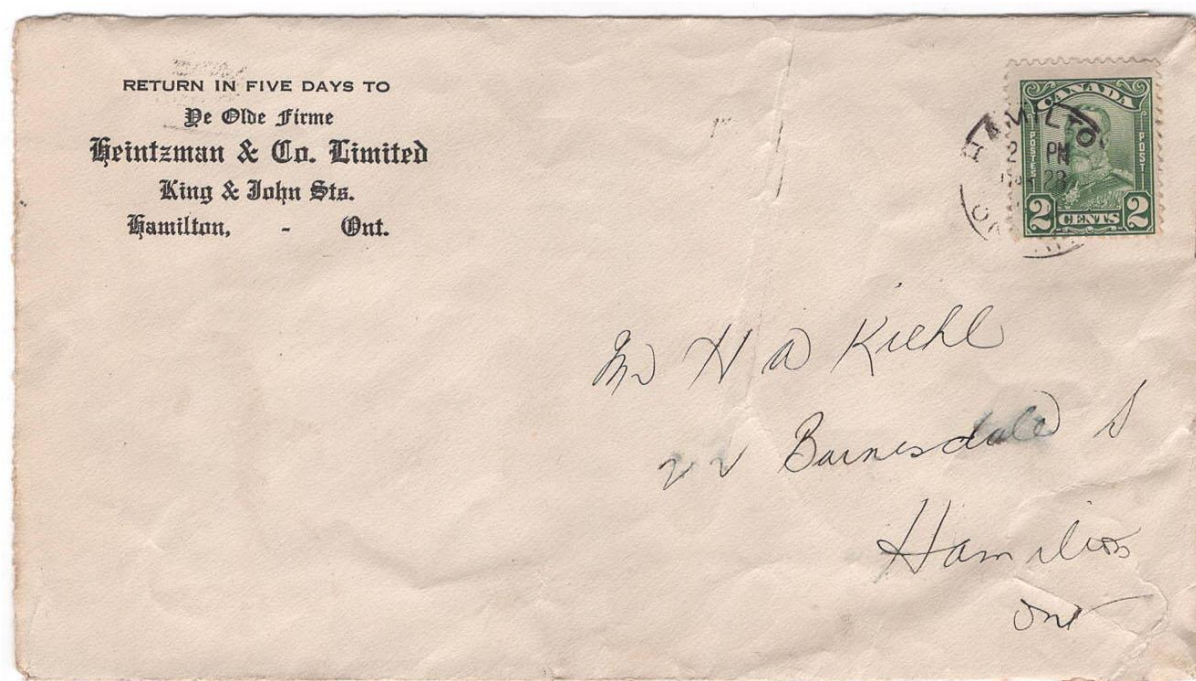 RETURN IN FIVE DAYS TO
Ye Olde Firme
Heintzman & Co. Limited
King & John Sts.
Hamilton, - Ont.
CANADA
POSTES
POST
2 CENTS 2
HAMILTO
2 PM
28
Mr H A Kiehl
22 Barnesdale S
Hamilton
Ont